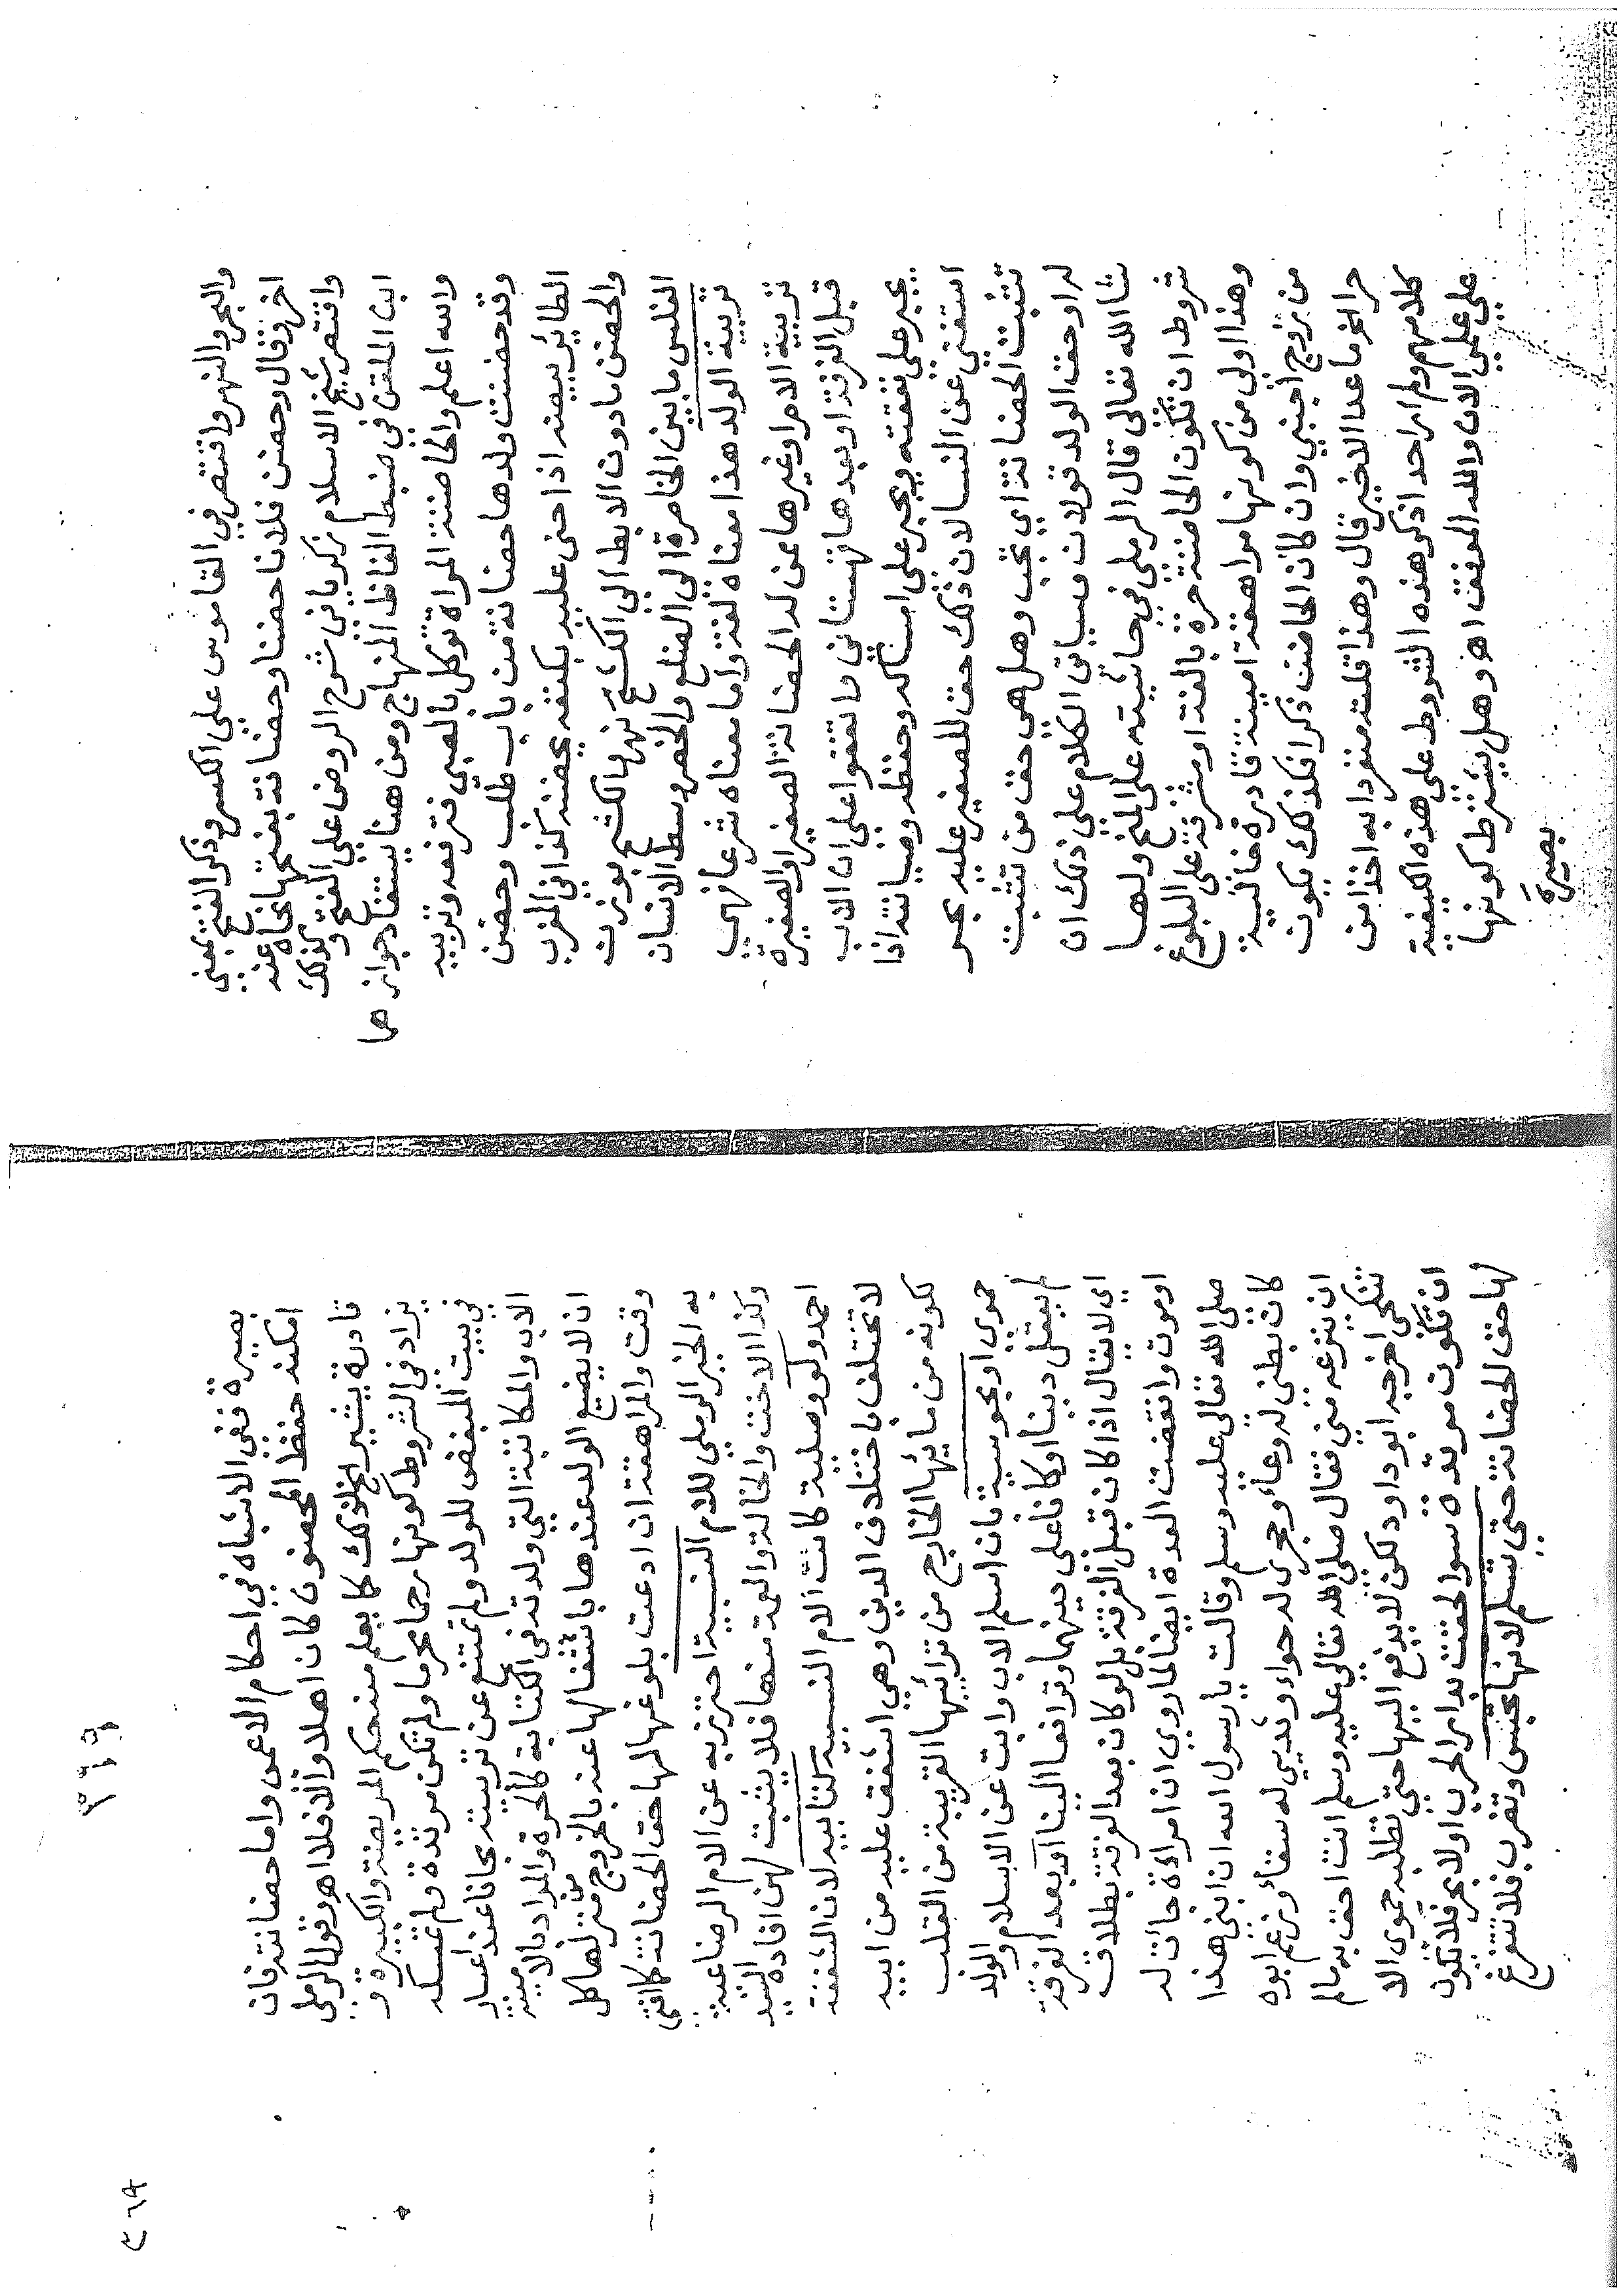 والبحر والنهر واقتصر في القاموس على الكسر وذكر الفتح بمعنى
اخر فقال وحضن فلانا حضنا وحضانة بفتحهما نحاه عنه
واقتصر شيخ الاسلام زكريا في شرح الروض على الفتح وكذلك
ابن الملقن في ضبط الفاظ المنهاج ومن هنا يستفاد جوازهما
والله اعلم والحاضنة المراة توكل بالصبي فترفعه وتربيه
وقد حضنت ولدها حضانة من باب طلب وحضن
الطائر بيضه اذا جثى عليه بكنفه يحضنه كذا في المغرب
والحضن ما دون الابط الى الكشح نهر والكشح بوزن
الفلس ما بين الخاصرة الى الضلع والخصر وسط الانسان
تربية الولد هذا معناه لغة واما معناه شرعا فهي
تربية الام او غيرها ممن له الحضانة الصغير او الصغيرة
قبل الفرقة او بعدها قهستاني واتفقوا على ان الاب
يجبر على نفقته ويجبر على امساكه وحفظه وصيانته اذا
استغنى عن النسا لان ذلك حق للصغير عليه بحر
تثبت الحضانة اي تجب وهل هي حق من تثبت
له او حق الولد قولان وسياتي الكلام على ذلك ان
شا الله تعالى قال الرملي في حاشيته على المنح ولها
شروط ان تكون الحاضنة حرة بالغة او مشرفة على البلوغ
وهذا اولى من كونها مراهقة امينة قادرة خالية
من زوج اجنبي وان كان الحاضن ذكرا فكذلك يكون
حرا الخ ما عدا الاخير قال وهذا قلته منفردا به اخذا من
كلامهم ولم ار احدا ذكر هذه الشروط على هذه الكيفية
على علمي الان والله الموفق اهـ وهل يشترط كونها
بصيرة
بصيرة ففي الاشباه في احكام الاعمى واما حضانته فان
امكنه حفظ المحضون كان اهلا والا فلا اهـ وقول الرملي
قادرة يشير لذلك كما يعلم منه حكم المريضة والكبيرة و
يزاد في الشروط كونها رحما محرما ولم تكن مرتدة ولم تمسكه
في بيت المبغض للولد ولم تمتنع عن تربيته مجانا عند اعسار
الاب والمكاتبة التي ولدته في الكتابة كالحرة والمراد بالامينة
ان لا يضيع الولد عندها باشتغالها عنه بالخروج من منزلها كل
وقت والمراهقة ان ادعت بلوغها لها حق الحضانة كما افتى
به الخير الرملي للام النسبية احترز به عن الام الرضاعية
وكذا الاخت والخالة والعمة منها فلا يثبت لهن افاده السيد
احمد ولو وصلية كانت الام النسبية كتابية لان الشفقة
لا تختلف باختلاف الدين وهي اشفق عليه من ابيه
لكونه من مايها الخارج من ترائبها القريبة من القلب
حموي او مجوسية بان اسلم الاب وابت عن الاسلام والولد
لم يعقل دينا او كانا على دينهما وترافعا الينا او بعد الفرقة
اي لا يقال اذا كان قبل الفرقة بل لو كان بعد الفرقة بطلاق
او موت وانقضت العدة ايضا لما روي ان امراة جات له
صلى الله تعالى عليه وسلم وقالت يا رسول الله ان ابني هذا
كان بطني له وعأ وحجري له حواء وثديي له سقأ وزعم ابوه
ان ينزعه مني فقال صلى الله تعالى عليه وسلم انت احق به ما لم
تنكحي اخرجه ابو داود لكن لا يدفع اليها حتى تطلبه حموي الا
ان تكون مرتدة سوا لحقت بدار الحرب او لا بحر فلا تكون
لها حق الحضانة حتى تسلم لانها تحبس وتضرب فلا تتفرغ